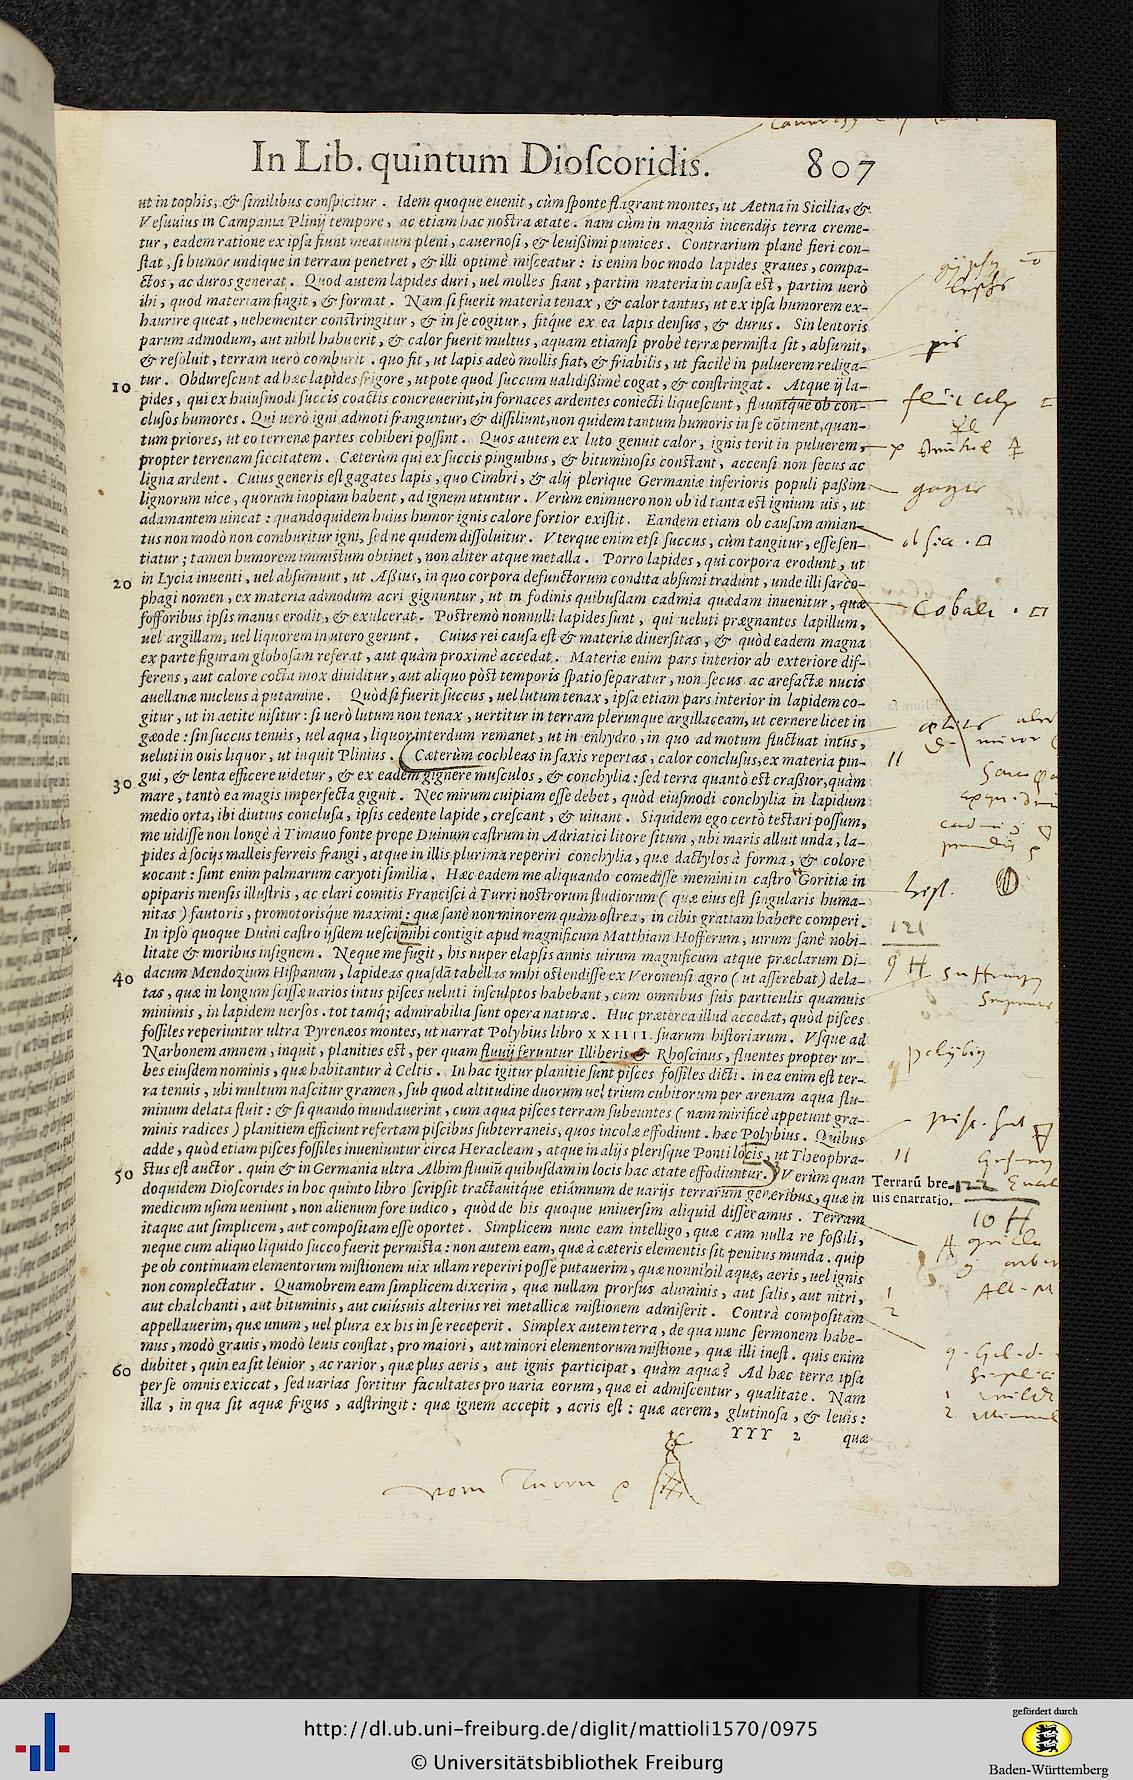 In Lib. quintum Dioſcoridis. 807
ut in tophis, & ſimilibus conſpicitur. Idem quoque euenit, cùm ſponte flagrant montes, ut Aetna in Sicilia, &
Veſuuius in Campania Plinij tempore, ac etiam hac noſtra ætate. nam cùm in magnis incendijs terra creme-
tur, eadem ratione ex ipſa fiunt meatuum pleni, cauernoſi, & leuißimi pumices. Contrarium planè fieri con-
ſtat, ſi humor undique in terram penetret, & illi optimè miſceatur: is enim hoc modo lapides graues, compa-
ctos, ac duros generat. Quod autem lapides duri, uel molles fiant, partim materia in cauſa eſt, partim uerò
ibi, quod materiam fingit, & format. Nam ſi fuerit materia tenax, & calor tantus, ut ex ipſa humorem ex-
haurire queat, uehementer conſtringitur, & in ſe cogitur, fitq́ue ex ea lapis denſus, & durus. Sin lentoris
parum admodum, aut nihil habuerit, & calor fuerit multus, aquam etiamſi probè terræ permiſta ſit, abſumit,
& reſoluit, terram uerò comburit. quo fit, ut lapis adeò mollis fiat, & friabilis, ut facilè in puluerem rediga-
10 tur. Obdureſcunt ad hæc lapides frigore, utpote quod ſuccum ualidißimè cogat, & conſtringat. Atque ij la-
pides, qui ex huiuſmodi ſuccis coactis concreuerint, in fornaces ardentes coniecti liqueſcunt, fluuntq́ue ob con-
cluſos humores. Qui uerò igni admoti franguntur, & diſſiliunt, non quidem tantum humoris in ſe cōtinent, quan-
tum priores, ut eo terrenæ partes cohiberi poſſint. Quos autem ex luto genuit calor, ignis terit in puluerem,
propter terrenam ſiccitatem. Cæterùm qui ex ſuccis pinguibus, & bituminoſis conſtant, accenſi non ſecus ac
ligna ardent. Cuius generis eſt gagates lapis, quo Cimbri, & alij plerique Germaniæ inferioris populi paßim
lignorum uice, quorum inopiam habent, ad ignem utuntur. Verùm enimuero non ob id tanta eſt ignium uis, ut
adamantem uincat: quandoquidem huius humor ignis calore fortior exiſtit. Eandem etiam ob cauſam amian-
tus non modò non comburitur igni, ſed ne quidem diſſoluitur. Vterque enim etſi ſuccus, cùm tangitur, eſſe ſen-
tiatur; tamen humorem immiſtum obtinet, non aliter atque metalla. Porro lapides, qui corpora erodunt, ut
20 in Lycia inuenti, uel abſumunt, ut Aßius, in quo corpora defunctorum condita abſumi tradunt, unde illi ſarco-
phagi nomen, ex materia admodum acri gignuntur, ut in fodinis quibuſdam cadmia quædam inuenitur, quæ
foſſoribus ipſis manus erodit, & exulcerat. Poſtremò nonnulli lapides ſunt, qui ueluti prægnantes lapillum,
uel argillam, uel liquorem in utero gerunt. Cuius rei cauſa eſt & materiæ diuerſitas, & quòd eadem magna
ex parte figuram globoſam referat, aut quàm proximè accedat. Materiæ enim pars interior ab exteriore dif-
ferens, aut calore cocta mox diuiditur, aut aliquo pòſt temporis ſpatio ſeparatur, non ſecus ac arefactæ nucis
auellanæ nucleus à putamine. Quòd ſi fuerit ſuccus, uel lutum tenax, ipſa etiam pars interior in lapidem co-
gitur, ut in aetite uiſitur: ſi uerò lutum non tenax, uertitur in terram plerunque argillaceam, ut cernere licet in
gæode: ſin ſuccus tenuis, uel aqua, liquor interdum remanet, ut in enhydro, in quo ad motum fluctuat intus,
ueluti in ouis liquor, ut inquit Plinius. Cæterùm cochleas in ſaxis repertas, calor concluſus, ex materia pin-
30 gui, & lenta efficere uidetur, & ex eadem gignere muſculos, & conchylia: ſed terra quantò eſt craßior, quàm
mare, tantò ea magis imperfecta gignit. Nec mirum cuipiam eſſe debet, quòd eiuſmodi conchylia in lapidum
medio orta, ibi diutius concluſa, ipſis cedente lapide, creſcant, & uiuant. Siquidem ego certò teſtari poſſum,
me uidiſſe non longè à Timauo fonte prope Duinum caſtrum in Adriatici litore ſitum, ubi maris alluit unda, la-
pides à ſocijs malleis ferreis frangi, atque in illis plurima reperiri conchylia, quæ dactylos à forma, & colore
uocant: ſunt enim palmarum caryoti ſimilia. Hæc eadem me aliquando comediſſe memini in caſtro Goritiæ in
opiparis menſis illuſtris, ac clari comitis Franciſci à Turri noſtrorum ſtudiorum (quæ eius eſt ſingularis huma-
nitas) fautoris, promotoriſque maximi: quæ ſanè non minorem quàm oſtrea, in cibis gratiam habere comperi.
In ipſo quoque Duini caſtro ijſdem ueſci mihi contigit apud magnificum Matthiam Hofferum, uirum ſanè nobi-
litate & moribus inſignem. Neque me fugit, his nuper elapſis annis uirum magnificum atque præclarum Di-
40 dacum Mendozium Hiſpanum, lapideas quaſdā tabellas mihi oſtendiſſe ex Veronenſi agro (ut aſſerebat) dela-
tas, quæ in longum ſciſſæ uarios intus piſces ueluti inſculptos habebant, cum omnibus ſuis particulis quamuis
minimis, in lapidem uerſos. tot tamq́; admirabilia ſunt opera naturæ. Huc præterea illud accedat, quòd piſces
foſſiles reperiuntur ultra Pyrenæos montes, ut narrat Polybius libro XXIIII. ſuarum hiſtoriarum. Vſque ad
Narbonem amnem, inquit, planities eſt, per quam fluuij feruntur Illiberis & Rhoſcinus, fluentes propter ur-
bes eiuſdem nominis, quæ habitantur à Celtis. In hac igitur planitie ſunt piſces foſſiles dicti. in ea enim eſt ter-
ra tenuis, ubi multum naſcitur gramen, ſub quod altitudine duorum uel trium cubitorum per arenam aqua flu-
minum delata fluit: & ſi quando inundauerint, cum aqua piſces terram ſubeuntes (nam mirificè appetunt gra-
minis radices) planitiem efficiunt refertam piſcibus ſubterraneis, quos incolæ effodiunt. hæc Polybius. Quibus
adde, quòd etiam piſces foſſiles inueniuntur circa Heracleam, atque in alijs pleriſque Ponti locis, ut Theophra-
50 ſtus eſt auctor. quin & in Germania ultra Albim fluuiū quibuſdam in locis hac ætate effodiuntur. Verùm quan
doquidem Dioſcorides in hoc quinto libro ſcripſit tractauitq́ue etiámnum de uarijs terrarum generibus, quæ in
Terrarū bre-
uis enarratio.
medicum uſum ueniunt, non alienum fore iudico, quòd de his quoque uniuerſim aliquid diſſeramus. Terram
itaque aut ſimplicem, aut compoſitam eſſe oportet. Simplicem nunc eam intelligo, quæ cum nulla re foßili,
neque cum aliquo liquido ſucco fuerit permiſta: non autem eam, quæ à cæteris elementis ſit penitus munda. quip
pe ob continuam elementorum miſtionem uix ullam reperiri poſſe putauerim, quæ nonnihil aquæ, aeris, uel ignis
non complectatur. Quamobrem eam ſimplicem dixerim, quæ nullam prorſus aluminis, aut ſalis, aut nitri,
aut chalchanti, aut bituminis, aut cuiúſuis alterius rei metallicæ miſtionem admiſerit. Contrà compoſitam
appellauerim, quæ unum, uel plura ex his in ſe receperit. Simplex autem terra, de qua nunc ſermonem habe-
mus, modò grauis, modò leuis conſtat, pro maiori, aut minori elementorum miſtione, quæ illi ineſt. quis enim
60 dubitet, quin ea ſit leuior, ac rarior, quæ plus aeris, aut ignis participat, quàm aquæ? Ad hæc terra ipſa
per ſe omnis exiccat, ſed uarias ſortitur facultates pro uaria eorum, quæ ei admiſcentur, qualitate. Nam
illa, in qua ſit aquæ frigus, adſtringit: quæ ignem accepit, acris eſt: quæ aerem, glutinoſa, & leuis:
YYY 2 quæ
Cobalt
121
http://dl.ub.uni-freiburg.de/diglit/mattioli1570/0975
© Universitätsbibliothek Freiburg
gefördert durch
Baden-Württemberg